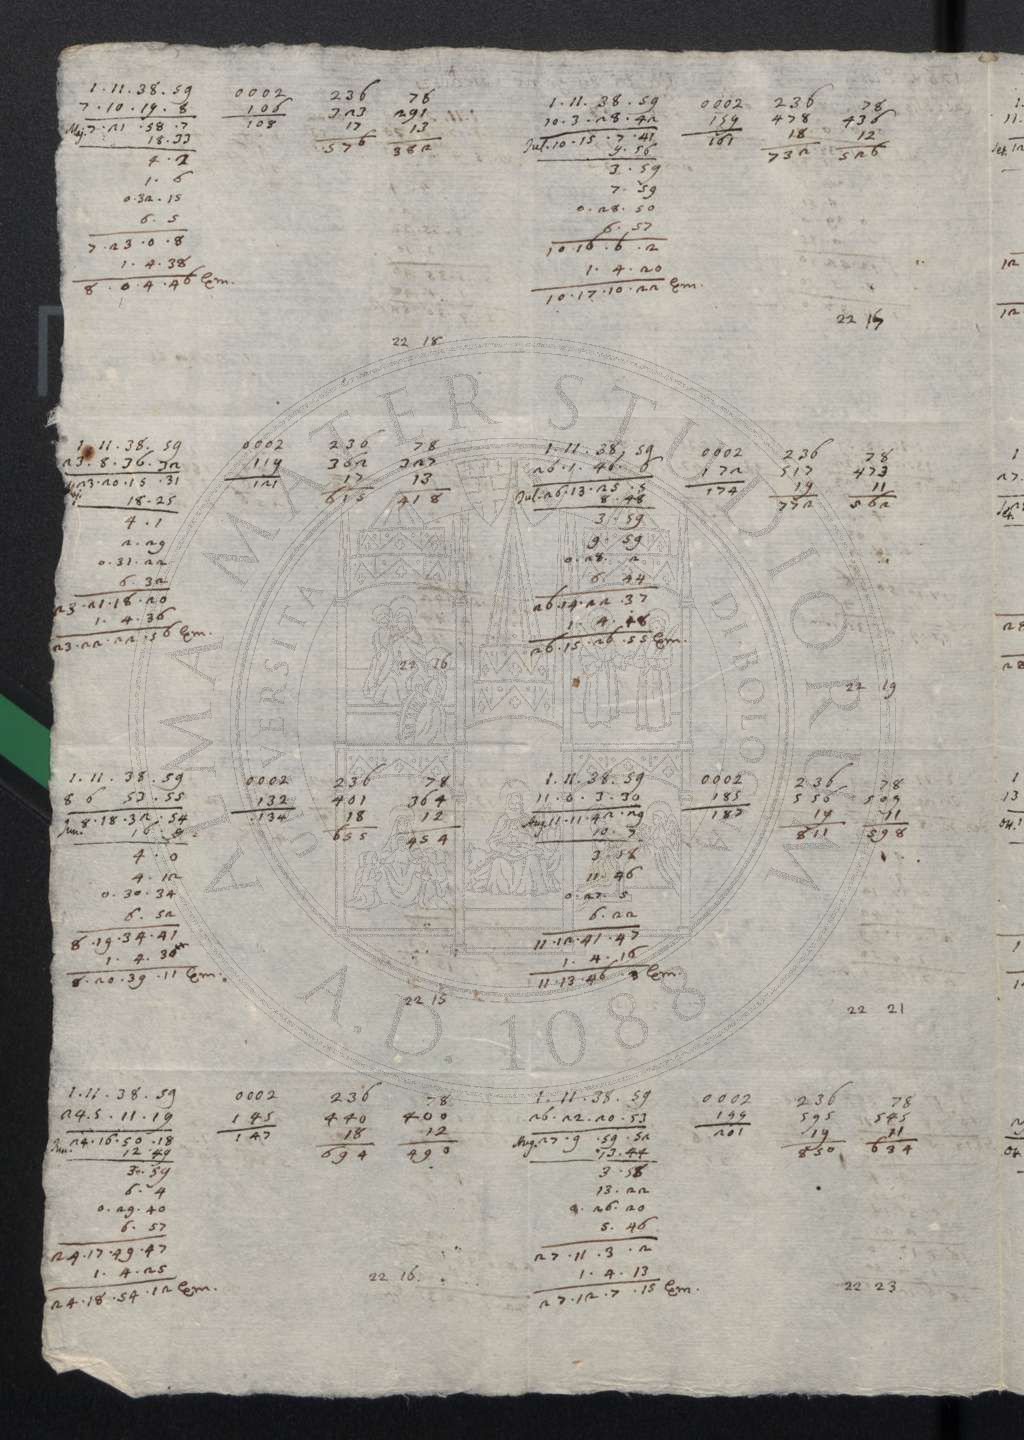 1.11.38.59 0002 236 78
7.10.19.8 106 323 291
Maj. 7.21.58.7 108 17 13
18.33 576 382
4.2
1.6
0.32.15
6.5
7.23.0.8
1.4.38
8.0.4.46 Em.
22 18
1.11.38.59 0002 236 78
10.3.28.42 159 478 436
Jul. 10.15.7.41 161 18 12
9.56 732 526
3.59
7.59
0.28.50
6.57
10.16.6.2
1.4.20
10.17.10.22 Em.
22 16
1.11.38.59 0002 236 78
23.8.36.32 119 362 327
23.20.15.31 121 17 13
18.25 615 418
4.1
2.29
0.31.22
6.32
23.21.18.20
1.4.36
23.22.22.56 Em.
22 16
1.11.38.59 0002 236 78
26.1.46.6 172 517 473
Jul. 26.13.25.5 174 19 11
8.48 772 562
3.59
9.59
0.28.2
6.44
26.14.22.37
1.4.18
26.15.26.55 Em.
22 19
1.11.38.59 0002 236 78
8 6 53.55 132 401 364
Jun. 8.18.32.54 134 18 12
655 454
4.0
4.12
0.30.34
6.52
8.19.34.41
1.4.30
8.20.39.11 Em.
22 15
1.11.38.59 0002 236 78
11.0.3.30 185 556 509
Aug. 11.11.42.29 187 19 11
10.7 811 598
3.58
11.46
0.27.5
6.22
11.12.41.47
1.4.16
11.13.46.3 Em.
22 21
1.11.38.59 0002 236 78
24.5.11.19 145 440 400
Jun. 24.16.50.18 147 18 12
12.49 694 490
3.59
6.4
0.29.40
6.57
24.17.49.47
1.4.25
24.18.54.12 Em.
22 16
1.11.38.59 0002 236 78
26.22.20.53 199 595 545
Aug. 27.9.59.52 201 19 11
13.44 850 634
3.58
13.22
0.26.20
5.46
27.11.3.2
1.4.13
27.12.7.15 Em.
22 23
ALMA MATER STUDIORUM
UNIVERSITA DI BOLOGNA
A.D. 1088